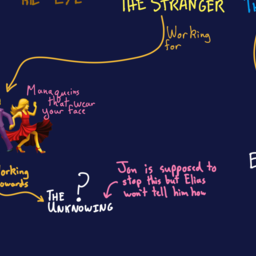 THE EYE
THE STRANGER
Working
for
Manaquins
that wear
your face
Working
towards
?
THE
UNKNOWING
Jon is supposed to
stop this but Elias
won't tell him how